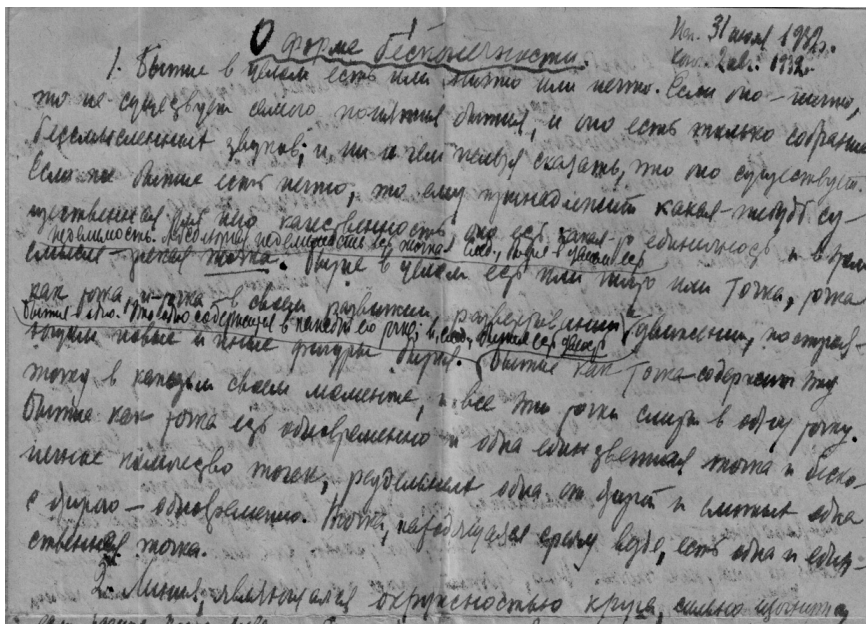 О форме бесконечности.
Нач. 31 июля 1932 г.
Кон. 2 авг. 1932 г.
1. Бытие в целом есть или ничто или нечто. Если оно – ничто,
то не существует самого понятия бытия, и оно есть только собрание
бессмысленных звуков; и ни о чем нельзя сказать, что оно существует.
Если же бытие есть нечто, то ему принадлежит какая-нибудь су-
щественная для него качественность, оно есть какая-то единичность и в этом
неделимость. Абсолютная неделимость есть точка. След., бытие в целом есть
смысле – некая точка. Бытие в целом есть или ничто или точка, точка
как точка и точка в своем развитии, развертывании, движении, построя-
бытия одно. содержится в каждой его точке; и, след., бытие есть
ющем новые и иные фигуры бытия. Бытие как точка содержит эту
точку в каждом своем моменте, и все эти точки слиты в одну точку.
Бытие как точка есть одновременно и одна единственная точка и беско-
нечное количество точек, раздельных одна от другой и слитых одна
с другою – одновременно. Точка, находящаяся сразу везде, есть одна и един-
ственная точка.
2. Линия, являющаяся окружностью круга, сильно